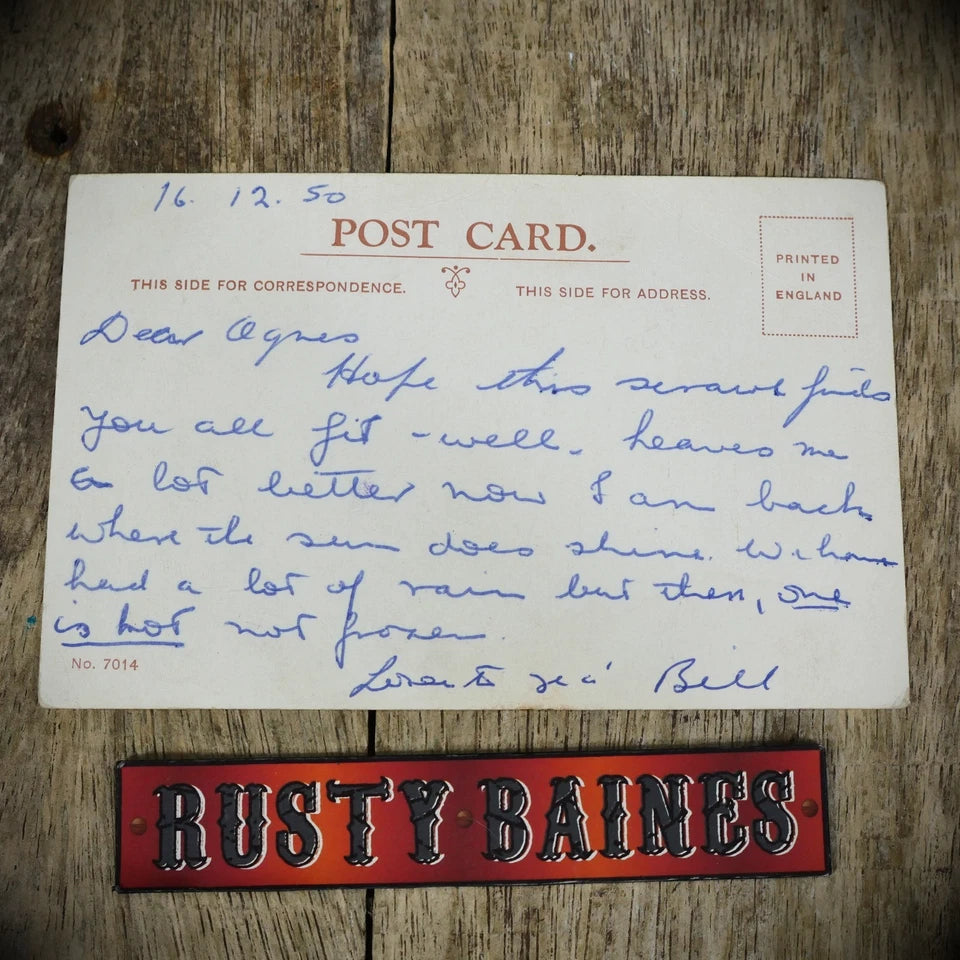 16. 12. 50
POST CARD.
THIS SIDE FOR CORRESPONDENCE.
THIS SIDE FOR ADDRESS.
PRINTED
IN
ENGLAND
Dear Agnes
Hope this scrawl finds
you all fit - well. leaves me
a lot better now I am back
where the sun does shine. We have
had a lot of rain but then, one
is hot not frozen.
No. 7014
Love to Bill
RUSTY BAINES